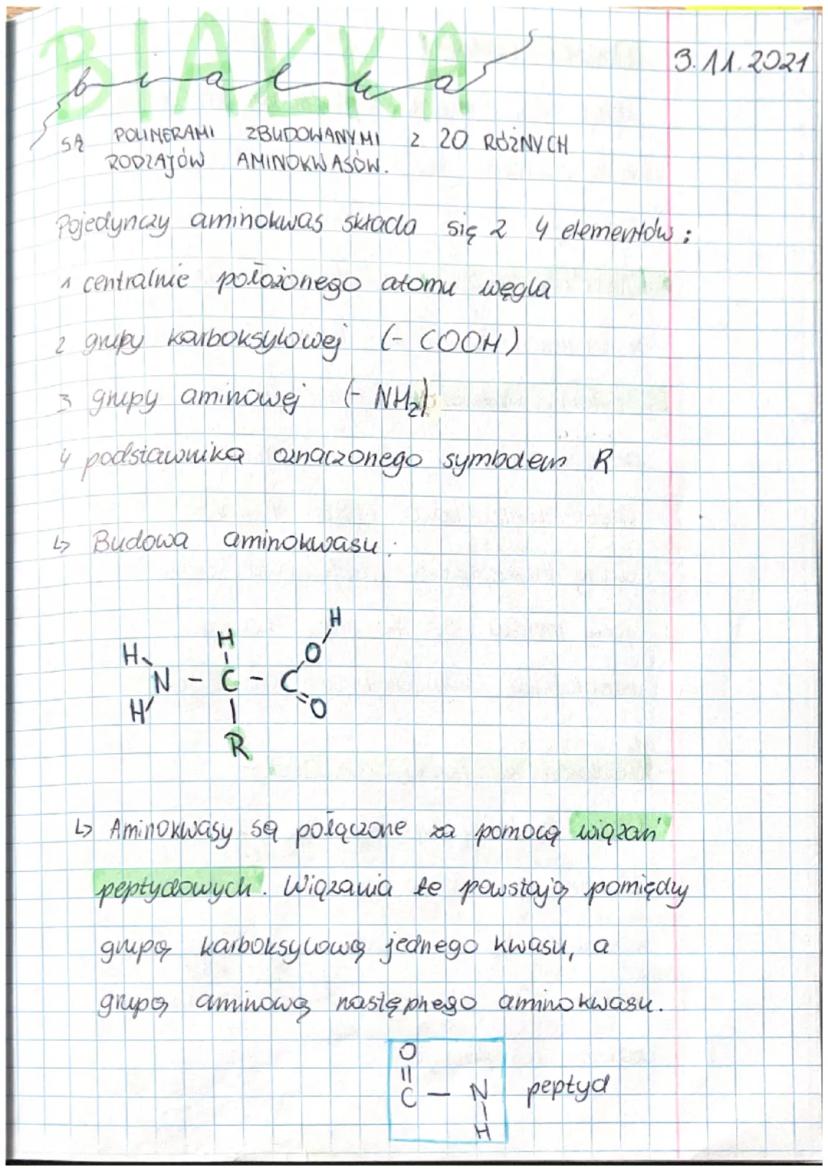 BIAŁKA
białka
3.11.2021
SĄ POLIMERAMI ZBUDOWANYMI Z 20 RÓŻNYCH
RODZAJÓW AMINOKWASÓW.
Pojedynczy aminokwas składa się z 4 elementów:
1 centralnie położonego atomu węgla
2 grupy karboksylowej (- COOH)
3 grupy aminowej (- NH2)
4 podstawnika oznaczonego symbolem R
↳ Budowa aminokwasu:
H
H H O
N - C - C
H O
R
↳ Aminokwasy są połączone za pomocą wiązań
peptydowych. Wiązania te powstają pomiędzy
grupą karboksylową jednego kwasu, a
grupą aminową następnego aminokwasu.
O
C - N peptyd
H